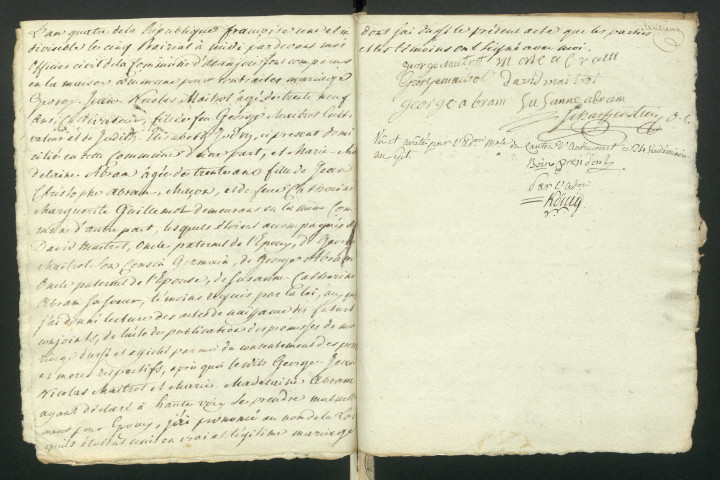 L'an quatre de la République françoise une et in
divisible le cinq prairial à midi par devant moi
Officier civil de la Commune d'Allanjoie sont comparus
en la maison commune pour contracter mariage
George Jean Nicolas Maitrot âgé de trente neuf
ans, Cultivateur, fils de feu George Maitrot Culti-
vateur et de Judith Elisabeth ci présent domi
cilié en cette Commune d'une part, et Marie Ma
delaine Abram âgée de trente ans fille de Jean
Christophe Abram, Maçon, et de feue Catherine
Marguerite Guillemot demeurans en la même Com
mune d'autre part, lesquels étoient accompagnés de
David Maitrot, Oncle paternel de l'Epoux, de George
Maitrot son Cousin Germain, de George Abram
Oncle paternel de l'Epouse, de Susanne Catherine
Abram sa soeur, témoins requis par la loi, auxquels
j'ai donné lecture des actes de naissance des futurs
conjoints, de l'acte de publication des promesses de ma
riage dressé et affiché par moi du consentement des peres
et meres respectifs, après quoi le dits George Jean
Nicolas Maitrot et Marie Madelaine Abram
ayant déclaré à haute voix se prendre mutuelle
ment pour Epoux, j'ai prononcé au nom de la Loi
qu'ils étoient unis en vrai et légitime mariage
dont j'ai dressé le présent acte que les parties
et les témoins ont signé avec moi.
george maitrot
George maitrot david maitrot
george abram Susanne abram
Vu et arrêté par l'adon male du Canton d'Audincourt ce 24 Vendemiaire
an sept.
Boin president
Par l'adon